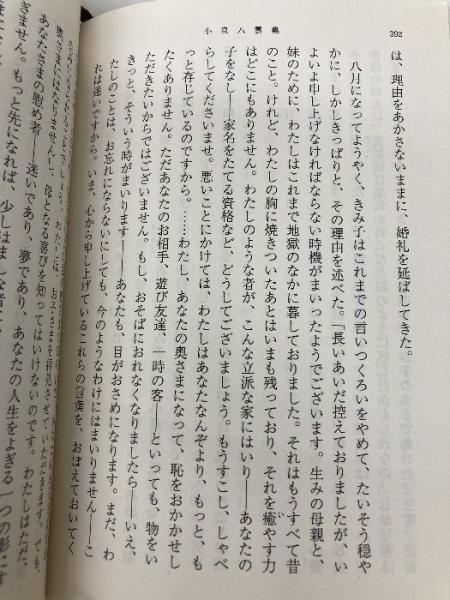 392
小泉八雲集
は、理由をあかさないままに、婚礼を延ばしてきた。
八月になってようやく、きみ子はこれまでの言いつくろいをやめて、たいそう穏や
かに、しかしきっぱりと、その理由を述べた。「長いあいだ控えておりましたが、い
よいよ申し上げなければならない時機がまいったようでございます。生みの母親と、
妹のために、わたしはこれまで地獄のなかに暮しておりました。それはもうすべて昔
のこと。けれど、わたしの胸に焼きついたあとはいまも残っており、それを癒やす力
はどこにもありません。わたしのような者が、こんな立派な家にはいり――あなたの
子をなし――家名をたてる資格など、どうしてございましょう。もうすこし、しゃべ
らしてくださいませ。悪いことにかけては、わたしはあなたなんぞより、もっと、も
っと存じているのですから。……わたし、あなたの奥さまになって、恥をおかかせし
たくありません。ただあなたのお相手、遊び友達、一時の客――といっても、物をい
ただきたいからではございません。もし、おそばにおれなくなりましたら――いえ、
きっと、そういう時がまいります――あなたも、目がおさめになります。まだ、わ
たしのことは、お忘れにならないにしても、今のようなわけにはまいりません――こ
れは迷いですから。いま、心から申し上げているこれらの言葉を、おぼえておいてく
奥さまにはなれません
母となる喜びを知ってはいけないのです。わたしはただ、
あなたさまの慰め者――迷いであり、夢であり、あなたの人生をよぎる一つの影にす
ぎません。もっと先になれば、少しはましな者に